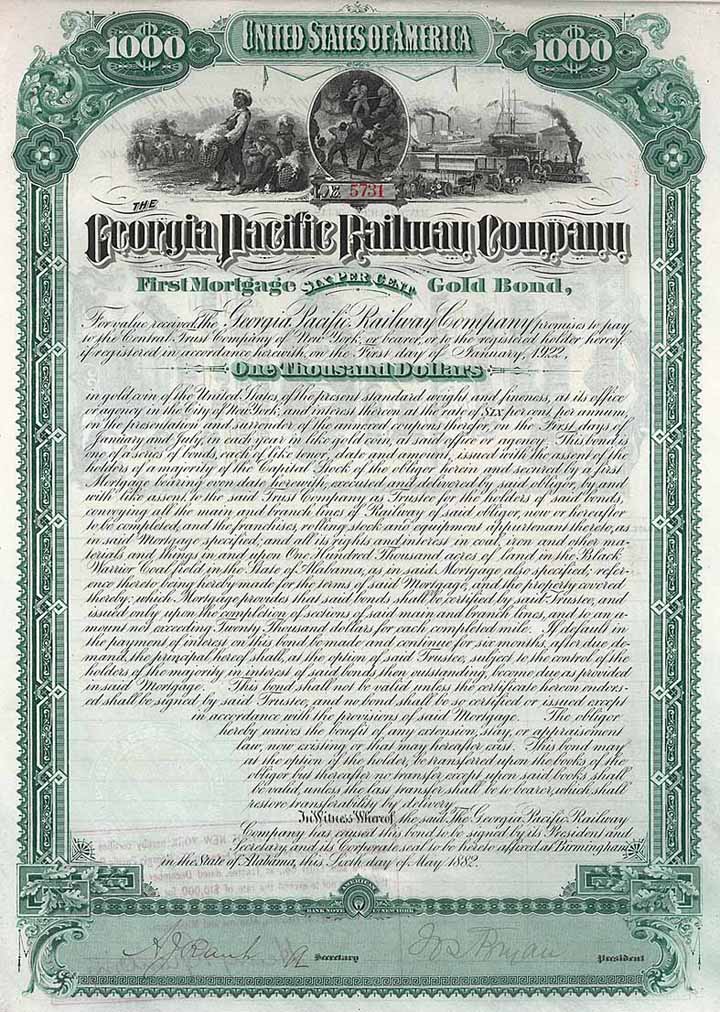 1000
UNITED STATES OF AMERICA
1000
No. 5731
THE
Georgia Pacific Railway Company
First Mortgage SIX PER CENT. Gold Bond,
For value received, The Georgia Pacific Railway Company promises to pay
to the Central Trust Company of New York, or bearer, or to the registered holder hereof,
if registered in accordance herewith, on the First day of January, 1922,
One Thousand Dollars
in gold coin of the United States, of the present standard weight and fineness, at its office
or agency in the City of New York, and interest thereon at the rate of SIX per cent per annum,
on the presentation and surrender of the annexed coupons therefor, on the First days of
January and July, in each year in like gold coin, at said office or agency. This bond is
one of a series of bonds, each of like tenor, date and amount, issued with the assent of the
holders of a majority of the Capital Stock of the obligor herein and secured by a first
Mortgage bearing even date herewith, executed and delivered by said obligor, by and
with like assent, to the said Trust Company as Trustee for the holders of said bonds,
conveying all the main and branch lines of Railway of said obligor, now or hereafter
to be completed, and the franchises, rolling stock and equipment appurtenant thereto, as
in said Mortgage specified, and all its rights and interest in coal, iron and other ma-
terials and things in and upon One Hundred Thousand acres of land in the Black
Warrior Coal field in the State of Alabama, as in said Mortgage also specified; refer-
ence thereto being hereby made for the terms of said Mortgage, and the property covered
thereby; which Mortgage provides that said bonds shall be certified by said Trustee, and
issued only upon the completion of sections of said main and branch lines, and to an a-
mount not exceeding Twenty Thousand dollars for each completed mile. If default in
the payment of interest on this bond be made and continue for six months, after due de-
mand, the principal hereof shall, at the option of said Trustee, subject to the control of the
holders of the majority in interest of said bonds then outstanding, become due as provided
in said Mortgage. This bond shall not be valid unless the certificate hereon endors-
ed shall be signed by said Trustee, and no bond shall be so certified or issued except
in accordance with the provisions of said Mortgage. The obligor
hereby waives the benefit of any extension, stay, or appraisement
law, now existing or that may hereafter exist. This bond may
at the option of the holder, be transferred upon the books of the
obligor but thereafter no transfer except upon said books shall
be valid, unless the last transfer shall be to bearer, which shall
restore transferability by delivery.
In Witness Whereof, the said The Georgia Pacific Railway
Company has caused this bond to be signed by its President and
Secretary, and its Corporate seal to be hereto affixed, at Birmingham
in the State of Alabama, this Sixth day of May 1882.
AMERICAN
BANK NOTE CO. NEW YORK
Secretary
President